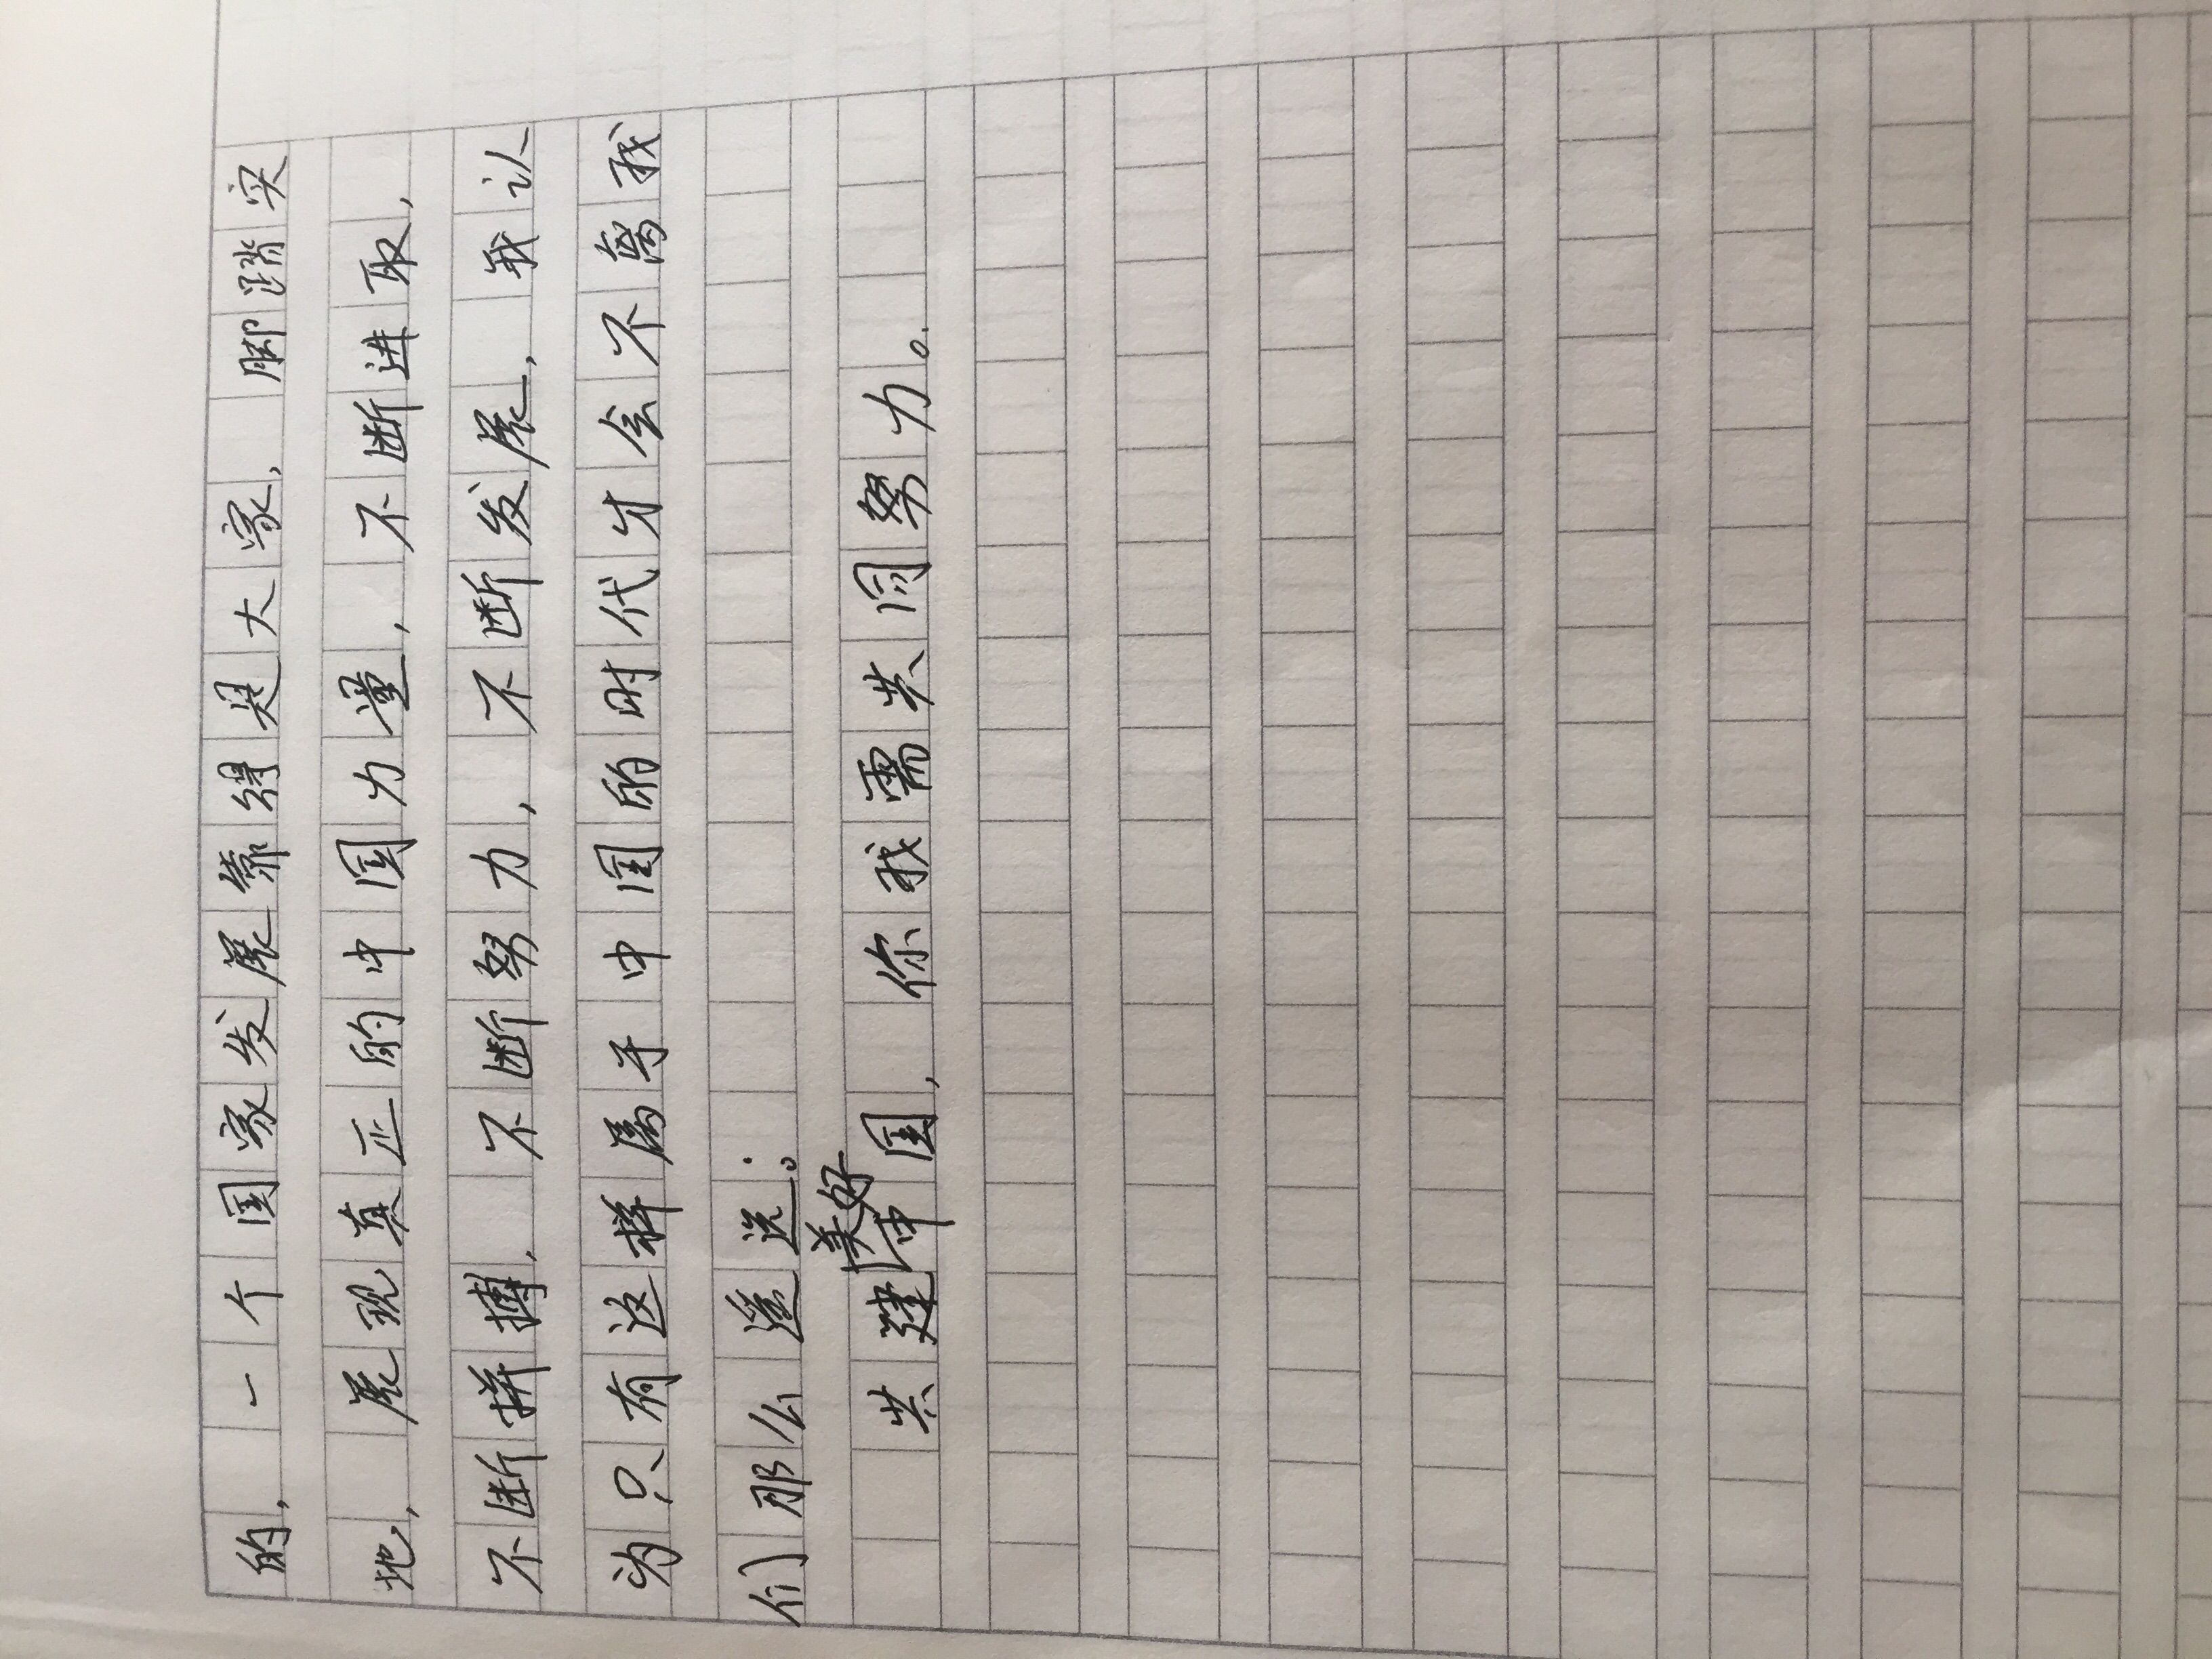 的，一个国家发展靠得是大家，脚踏实
地，展现真正的中国力量，不断进取，
不断拼搏，不断努力，不断发展，我认
为只有这样属于中国的时代才会不离我
们那么遥远。
共建美好中国，你我需共同努力。